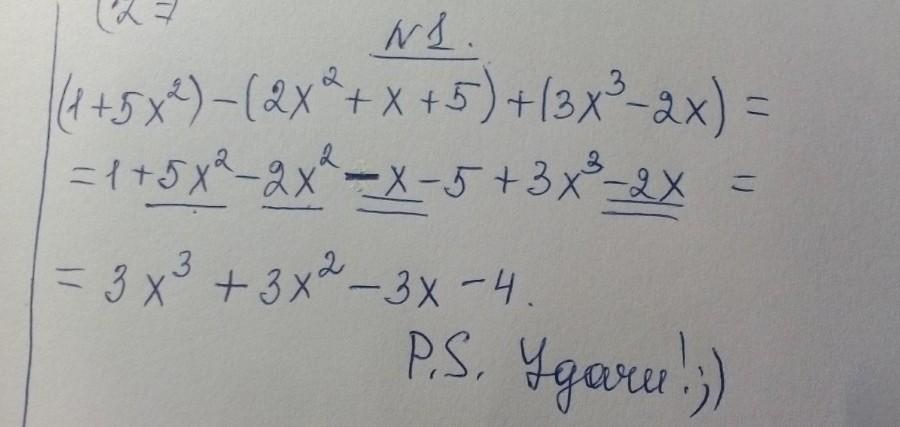 (2 =
N1.
(1+5x²)-(2x²+x+5)+(3x³-2x)=
=1+5x²-2x²-x-5+3x³-2x =
= 3x³+3x²-3x-4.
P.S. Удачи!;)